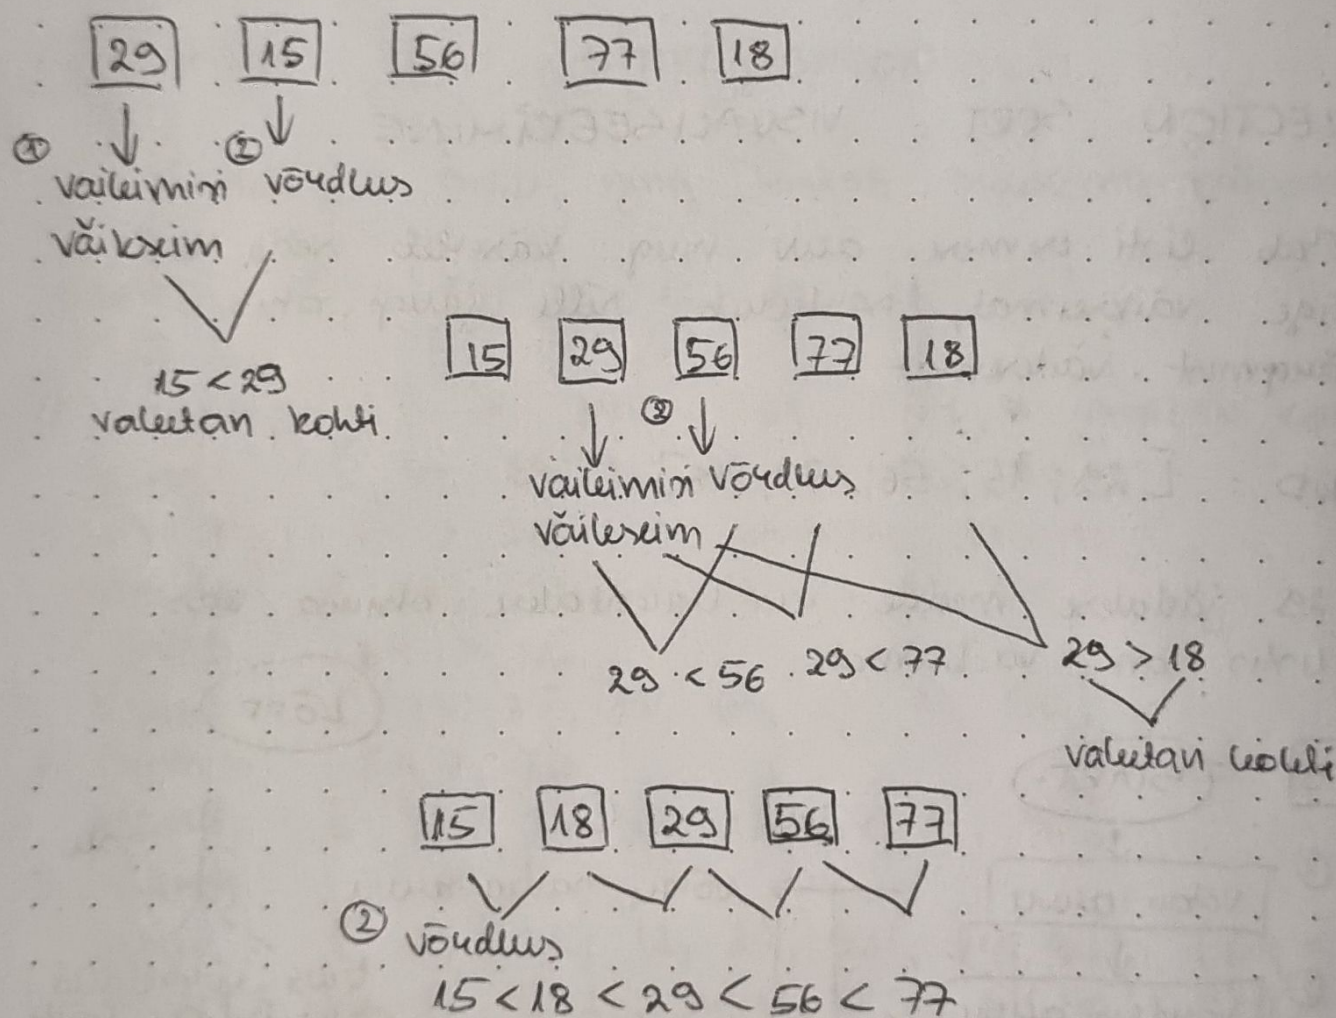 29 15 56 77 18
① ②
väikseim võrdlus
väikseim
15 < 29
vahetan kohti
15 29 56 77 18
②
väikseim võrdlus
väikseim
29 < 56 29 < 77 29 > 18
vahetan kohti
15 18 29 56 77
② võrdlus
15 < 18 < 29 < 56 < 77